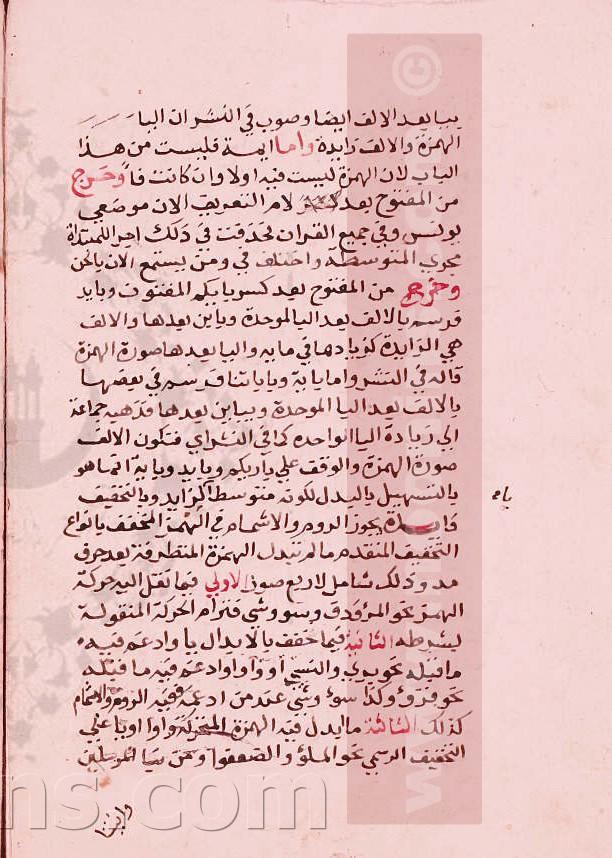 بيا بعد الالف ايضا وصوب في النشر ان اليا
الهمزة والالف زايدة واما ايمة فليست من هذا
الباب لان الهمزة ليست فيه اولا وان كانت فا وخرج
من المفتوح بعد لام التعريف الان موضعي
يونس وفي جميع القران لحذفت في ذلك اجرا للمبتداة
مجري المتوسطة واختلف في ومن يستمع الان بالجن
وخرج من المفتوح بعد كسر بايكم المفتون وبايد
فرسم بالالف بعد اليا الموحدة وياين بعدها والالف
هي الزايدة كزيادها في مايه واليا بعدها صورة الهمزة
قاله في النشر واما باية وباياتنا فرسم في بعضها
بالالف بعد اليا الموحدة وبياين بعدها فذهب جماعة
الي زيادة اليا الواحده كما في النشر اي فتكون الالف
صورة الهمزة والوقف علي باييكم وبايد وباية انما هو
بالتسهيل بالبدل لكونه متوسطا بزايد وبالتخفيف
فايدة يجوز الروم والاشمام في الهمز المخفف بانواع
التخفيف المتقدم ما لم تبدل الهمزة المتطرفة بعد حرف
مد وذلك شامل لاربع صور الاولي فيما نقل اليه حركة
الهمز نحو المرؤ دف وسو وشي فترام الحركة المنقولة
بشرطه الثانية فيما خفف بالابدال يا وادغم فيه
ما قبله نحو بري والنسي او واوا وادغم فيه ما قبله
نحو قرو وكذا سو وشي عند من ادغم ففيه الروم والاشمام
كذلك الثالثة ما ابدل فيه الهمزة المتحركة واوا اويا علي
التخفيف الرسمي نحو الملؤ والضعفؤا ومن نباي المرسلين
وايتا